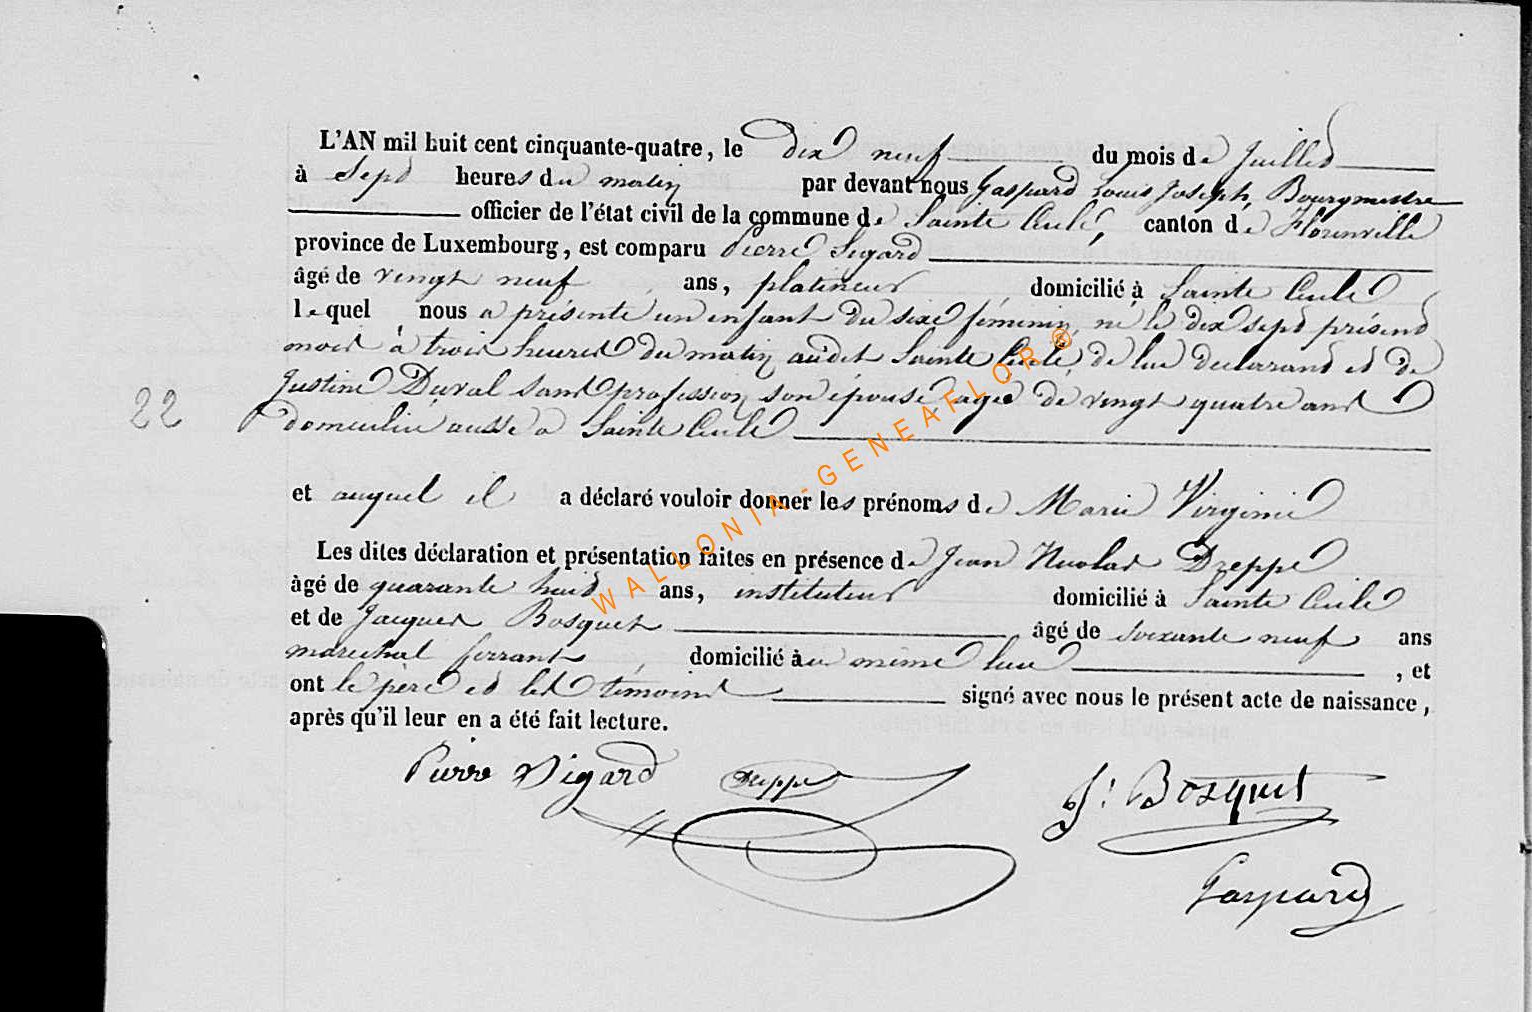 L'AN mil huit cent cinquante-quatre, le dix neuf du mois de Juillet
à Sept heures du matin par devant nous Gaspard Louis Joseph, Bourgmestre
officier de l'état civil de la commune de Sainte Cécile, canton de Florenville
province de Luxembourg, est comparu Pierre Sigard
âgé de vingt neuf ans, platineur domicilié à Sainte Cécile
lequel nous a présenté un enfant du sexe féminin, né le dix sept présent
mois à trois heures du matin audit Sainte Cécile, de lui déclarant et de
Justine Duval sans profession son épouse agée de vingt quatre ans
22
domiciliée aussi à Sainte Cécile
et auquel il a déclaré vouloir donner les prénoms de Marie Virginie
Les dites déclaration et présentation faites en présence de Jean Nicolas Dreppe
âgé de quarante huit ans, instituteur domicilié à Sainte Cécile
et de Jacques Bosquet âgé de soixante neuf ans
marechal ferrant, domicilié au même lieu, et
ont le père et les témoins signé avec nous le présent acte de naissance,
après qu'il leur en a été fait lecture.
Pierre Sigard Dreppe J: Bosquet
Gaspard
WALLONIA-GENEAFLOR®